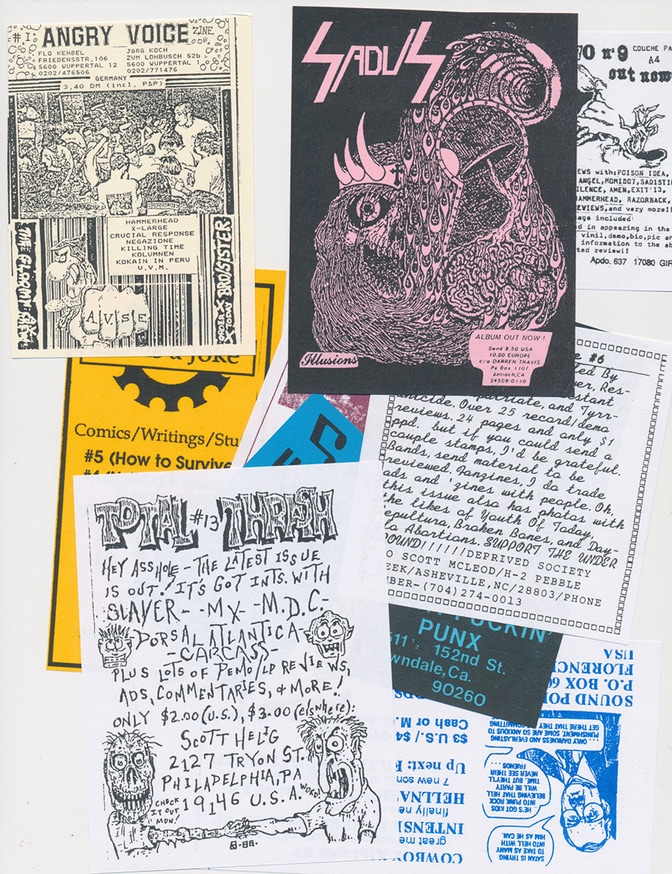 #1 ANGRY VOICE ZINE
FLO KEHBEL
FRIEDENSSTR.106
5600 WUPPERTAL 12
0202/476506
JØRG KOCH
ZUM LOHBUSCH 52b
5600 WUPPERTAL 1
0202/771476
GERMANY
3,40 DM (incl. P&P)
HAMMERHEAD
X-LARGE
CRUCIAL RESPONSE
NEGAZIONE
KILLING TIME
KOLUMNEN
KOKAIN IN PERU
U.V.M.
A.V.S.E
SADUS
Illusions
ALBUM OUT NOW!
Send 8.50 USA
10.00 EUROPE
c/o DARREN TRAVIS
Po Box 1107
Antioch,CA
94509-0110
nº9 COUCHE PA
A4
out now
EWS with:POISON IDEA,
ANGEL,HOMIDOT,SADISTI
ILENCE, AMEN,EXIT'13,
HAMMERHEAD, RAZORBACK,
EVIEWS,and very more!
age included
d in appearing in the
vinil,demo,bio,pic an
information to the ab
ted review!!
Apdo. 637 17080 GIR
a Joke
Comics/Writings/Stu
#5 (How to Survive
e #6
ted By
ver, Res-
nstant
icide, patriate, and Tyrr-
Over 25 record/demo
reviews. 24 pages and only $1
ppd. but if you could send a
couple stamps, I'd be grateful.
Bands, send material to be
reviewed. Fanzines, I do trade
s and 'zines with people. Oh,
this issue also has photos with
the likes of Youth Of Today,
epultura, Broken Bones, and Day-
lo Abortions. SUPPORT THE UNDER
ROUND!!!!!!DEPRIVED SOCIETY
O SCOTT MCLEOD/H-2 PEBBLE
EEK/ASHEVILLE,NC/28803/PHONE
MBER-(704)274-0013
TOTAL #13 THRASH
HEY ASSHOLE - THE LATEST ISSUE
IS OUT! IT'S GOT INTS. WITH
SLAYER- -MX- -M.D.C.-
-DORSAL ATLANTICA-
-CARCASS-
PLUS LOTS OF DEMO/LP REVIEWS,
ADS, COMMENTARIES, & MORE!
ONLY $2.00(U.S.), $3.00 (elswhere):
SCOTT HELIG
2127 TRYON ST.
PHILADELPHIA, PA
19146 U.S.A.
CHECK
IT OUT
'MON!
WORD!
8-88-
FUCKIN'
PUNX
511½ 152nd St.
wndale,Ca.
90260
SOUND PO
P.O. BOX 60
FLORENC
USA
$3 U.S./ $4
Cash or M.
Up next:
7 new son
HELLNA
finally
INTENS
great me
COWBOY
SATAN IS TRYING
TO TAKE AS MANY
INTO HELL WITH
HIM AS HE CAN.
HE'S GOT KIDS
INTO PUNK ROCK
BELIEVING THAT HELL
WILL BE A PARTY
TIME. BUT THEY'LL
NEVER SEE THEIR
FRIENDS
ONLY DARKNESS AND EVER-LASTING
PUNISHMENT. SOME ARE SO ANXIOUS TO
GET THERE THEY ARE COMMITTING